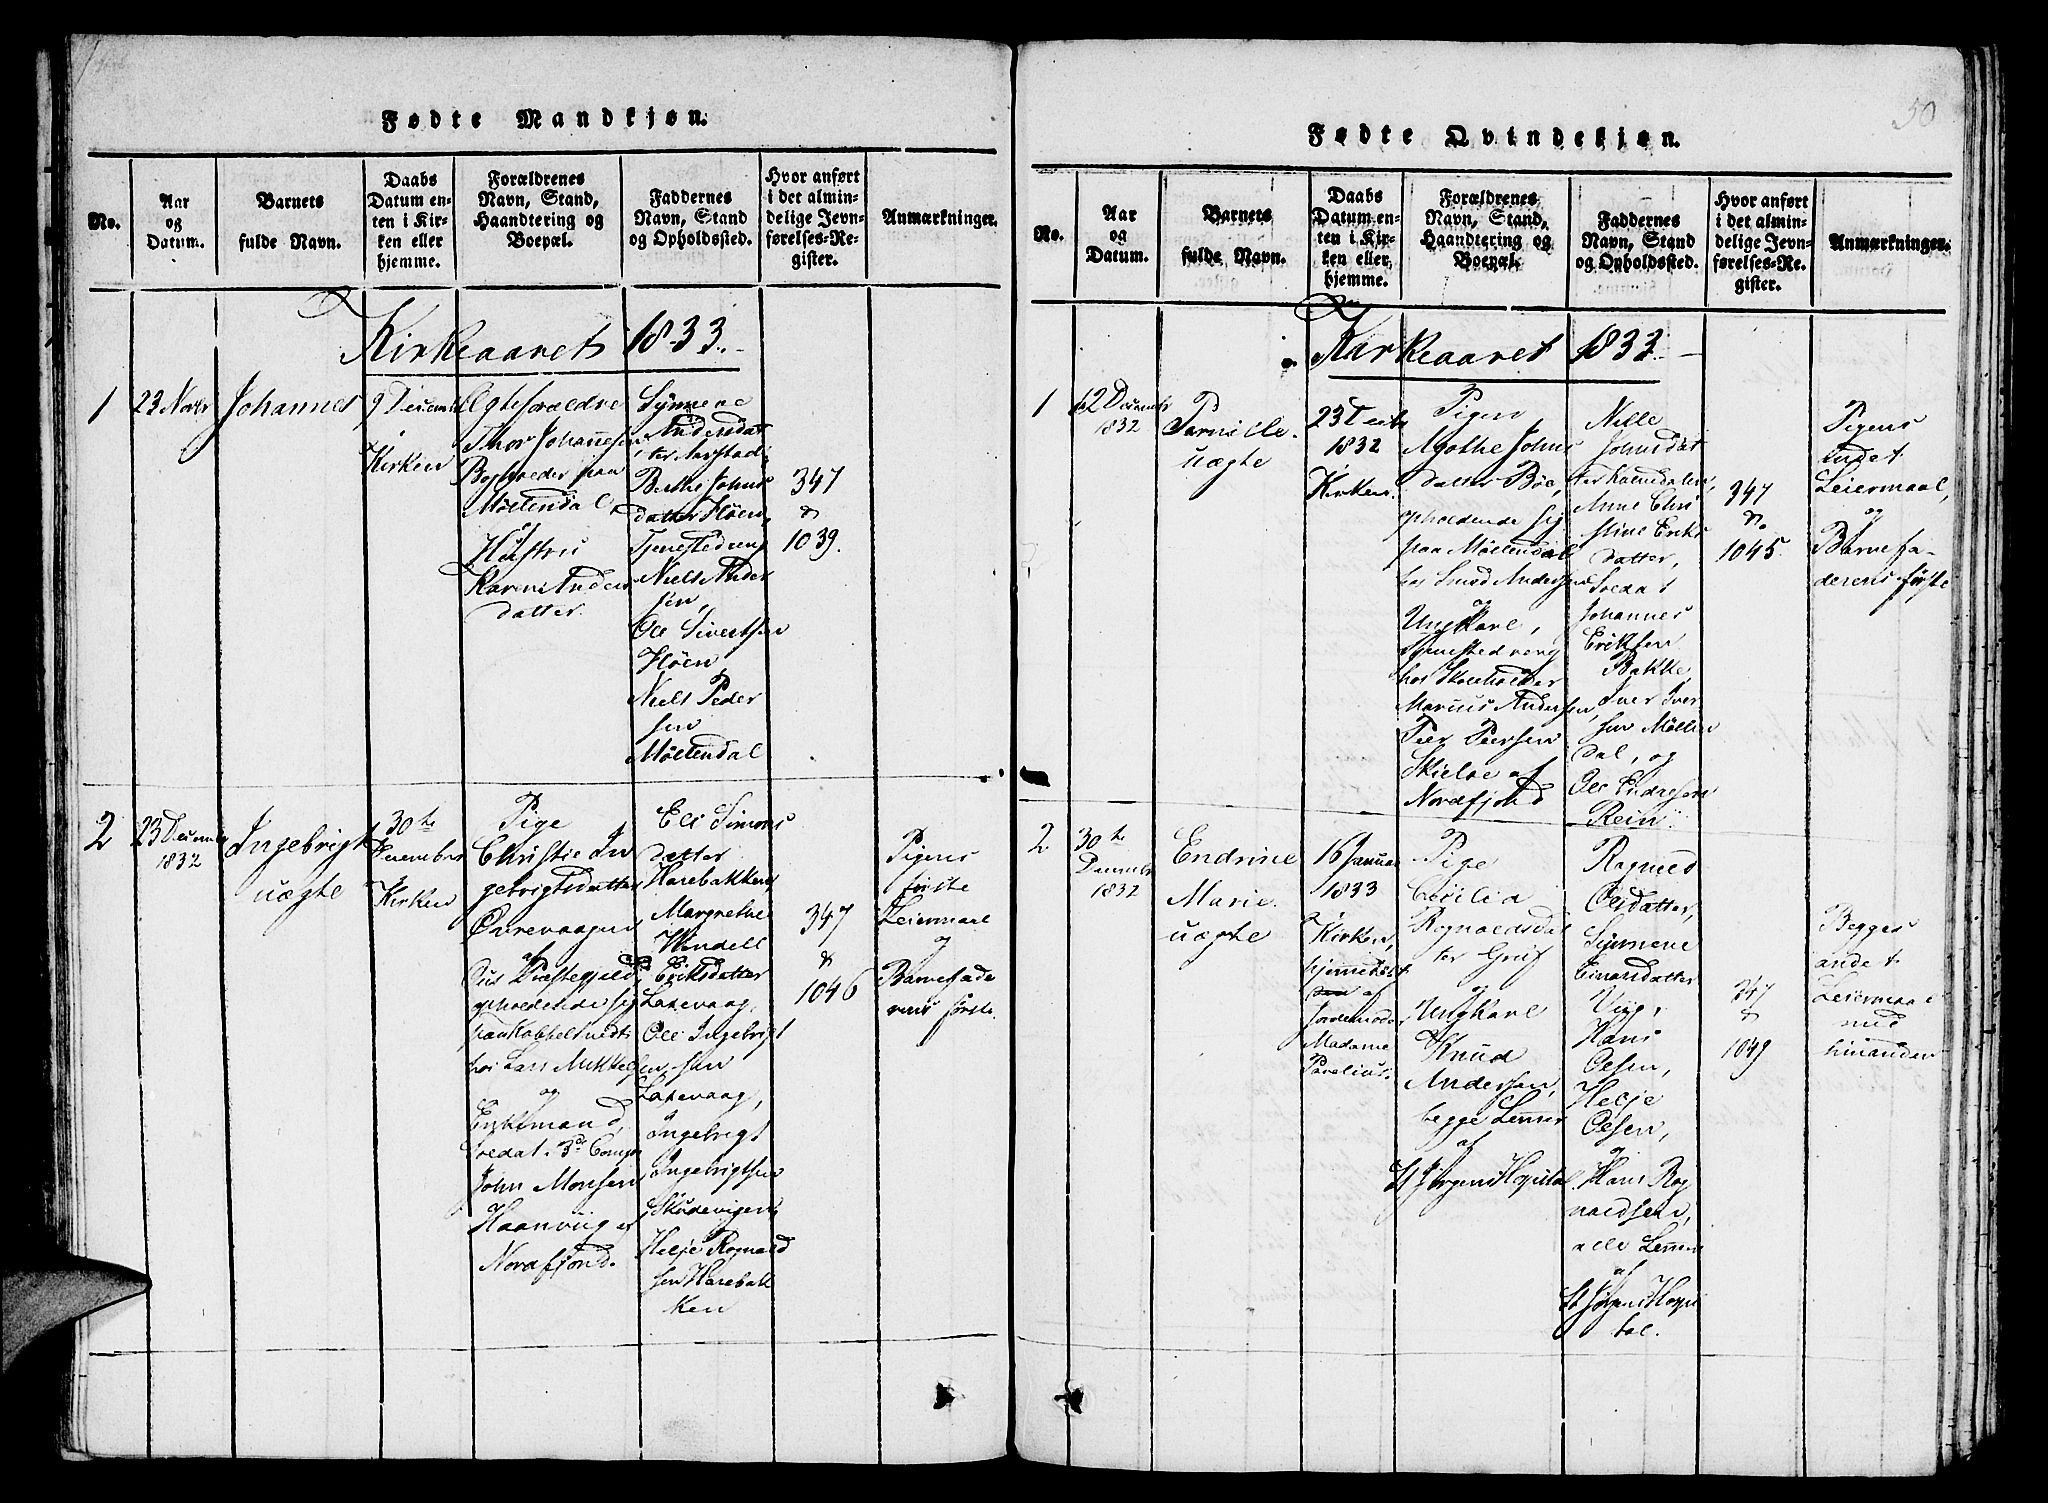 Fødte Mandkjøn.
No.
Aar
og
Datum.
Barnets
fulde Navn.
Daabs
Datum en-
ten i Kir-
ken eller
hjemme.
Forældrenes
Navn, Stand,
Haandtering og
Boepæl.
Faddernes
Navn, Stand
og Opholdssted.
Hvor anført
i det almin-
delige Jevn-
førelses-Re-
gister.
Anmærkninger.
Kirkeaaret 1833.
1
23 Novbr
Johannes
9 December
Kirken
Ægteforældre
Thor Johannesen
paa
Møllendal
og
Hustru
Karen Anders
datter.
Synneve
Andersdat
ter Aarstad,
Berthe Johns
datter Fløen,
Tjenestedreng
Niels Ander
sen,
Ole Sivertsen
Fløen
Niels Peder
sen
Møllendal
347
&
1039.
2
23 December
1832
Ingebrigt
uægte
30te
December
Kirken
Pige
Christie In
gebrigtsdatter
af
Præstegjeld,
opholdende sig
hos Lars Mikkel
og
Enkemand,
Soldat 3de Comp
John Monsen
Haanviig
Nordfjord.
Eli Simons
datter
Harebakken
Margrethe
Windell
Eriksdatter
Laxevaag,
Ole Ingebrigt
sen
Laxevaag,
Ingebrigt
Ingebrigtsen
Skudevigen,
og
Helje Rognald
sen Harebak
ken
347
&
1046
Pigens
første
Leiermaal
og
Barnefade
rens første.
50
Fødte Qvindekjøn.
No.
Aar
og
Datum.
Barnets
fulde Navn.
Daabs
Datum en-
ten i Kir-
ken eller
hjemme.
Forældrenes
Navn, Stand,
Haandtering og
Boepæl.
Faddernes
Navn, Stand
og Opholdssted.
Hvor anført
i det almin-
delige Jevn-
førelses-Re-
gister.
Anmærkninger.
Kirkeaaret 1833.
1
12 December
1832
Pernille.
uægte
23 Decbr
1832
Kirken.
Pigen
Agathe Johns
datter Bøe,
opholdende sig
paa Møllendal
hos Smed Andersen
og
Ungkarl,
Tjenestedreng
hos Skoeholder
Marcus Andersen,
Peer Peersen
af
Nordfjord
Nille
Johnsdat
ter Kalmdalen,
Anne Chri
stine Eriks
datter,
Soldat
Johannes
Eriksen
Bakke,
Iver Iver
sen Møllen
dal, og
Ole Endresen
Rein.
347
&
1045.
Pigens
andet
Leiermaal,
og
Barnefa-
derens første
2
30te
December
1832
Endrine
Marie.
uægte
16 Januar
1833
Kirken,
hjemmedøbt
af
Jordemoder
Madame
Pavelius.
Pige
Cecilia
Rognaldsdat
ter Grif
og
Ungkarl
Knud
Andersen,
begge Lemmer
af
St Jørgens Hospital.
Ragned
Olsdatter,
Synneve
Einarsdatter
Viig,
Hans
Olsen,
Helje
Olsen,
og
Hans Rog
naldsen,
alle Lemmer
af
St Jørgens Hospi
tal.
347
&
1049
Begges
andet
Leiermaal
med
hinanden